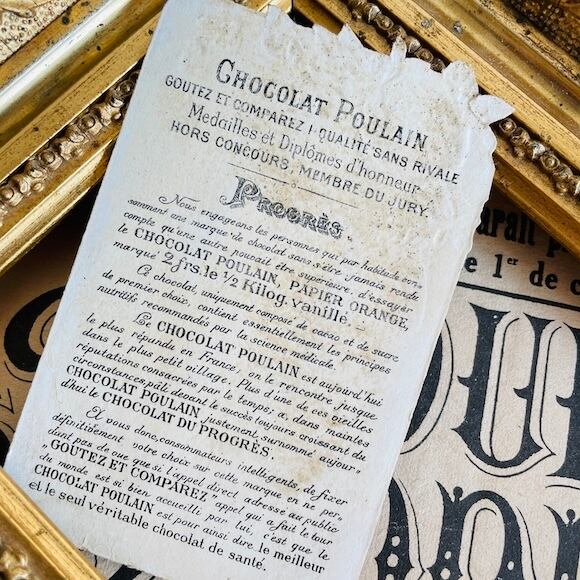 CHOCOLAT POULAIN
GOUTEZ ET COMPAREZ QUALITÉ SANS RIVALE
Médailles et Diplômes d'honneur
HORS CONCOURS, MEMBRE DU JURY.
PROGRÈS.
Nous engageons les personnes qui par habitude con-
somment une marque de chocolat sans s'être jamais rendu
compte qu'une autre pouvait être supérieure, d'essayer
le CHOCOLAT POULAIN, PAPIER ORANGE,
marqué 2 frs. le ½ Kilog. vanillé. —
Ce chocolat, uniquement composé de cacao et de sucre
de premier choix, contient essentiellement les principes
nutritifs recommandés par la science médicale.
Le CHOCOLAT POULAIN est aujourd'hui
le plus répandu en France; on le rencontre jusque
dans le plus petit village. Plus d'une de ces vieilles
réputations consacrées par le temps; a, dans maintes
circonstances pâli devant le succès toujours croissant du
CHOCOLAT POULAIN justement surnommé aujour„
d'hui le CHOCOLAT DU PROGRÈS.
A vous donc, consommateurs intelligents, de fixer
définitivement votre choix sur cette marque en ne per„
dant pas de vue que si l'appel direct adressé au public
„GOUTEZ ET COMPAREZ" appel qui a fait le tour
du monde est si bien accueilli par lui, c'est que le
CHOCOLAT POULAIN est pour ainsi dire le meilleur
et le seul véritable chocolat de santé.
arait
le 1er de c